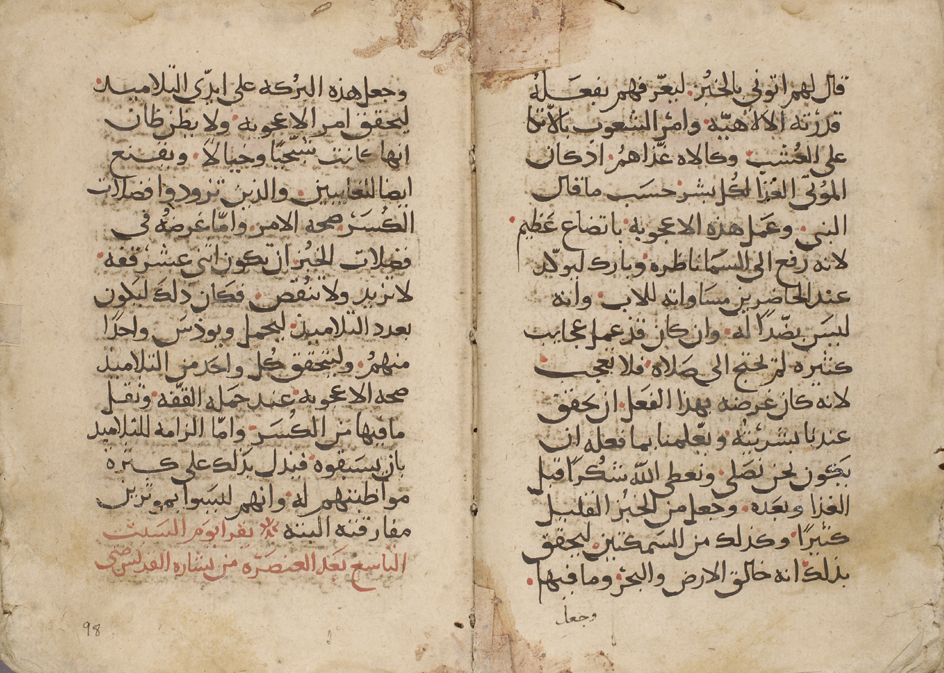 قال لهم اتوني بالخبز. ليعرفهم بفعله
قدرته الالاهيه. وامر الشعوب بالاتكا
على العشب. وكالاه غذاهم. اذ كان
الموتي الغذا لكل بشر. حسب ما قال
النبي. وعمل هذه الاعجوبه باتضاع عظيم.
لانه رفع الى السما ناظره. وبارك ليوكد
عند الحاضرين مساواته للاب. وانه
ليس بضدًا له. وان كان قد عمل عجايب
كثيره لم يحتج الى صلاه. فلا تعجب
لانه كان غرضه بهذا الفعل. ان يحقق
عندنا بشريته. ويعلمنا بما فعله ان
نكون نحن نصلي. ونعطي الله شكرًا قبل
الغذا وبعده. وجعل من الخبز القليل
كثيرًا. وكذلك من السمكتين. ليحقق
بذلك انه خالق الارض والبحر. وما فيها.
وجعل
وجعل هذه البركه على ايدي التلاميد.
ليحقق امر الاعجوبه. ولا يظن ظان
انها كانت شبحًا وخيالًا. ويقنع
ايضا للغايبين. والذين تزودوا فضلات
الكسر. صحه الامر. واما غرضه في
فضلات الخبز. ان يكون اثني عشر قفه.
لا تزيد ولا تنقص. فكان ذلك ليكون
بعدد التلاميذ. ليحمل ويوذس واحدًا
منهم. وليتحقق كل واحد من التلاميذ
صحه الاعجوبه. عند حمله القفه. وثقل
ما فيها من الكسر. واما الزامه للتلاميذ
بان يسبقوه. فيدل بذلك على كثره
مواظبتهم له. وانهم ليسوا بموثرين
مفارقته البته ※ يقرا يوم السبت
التاسع بعد العنصره من بشاره القديس متى
98